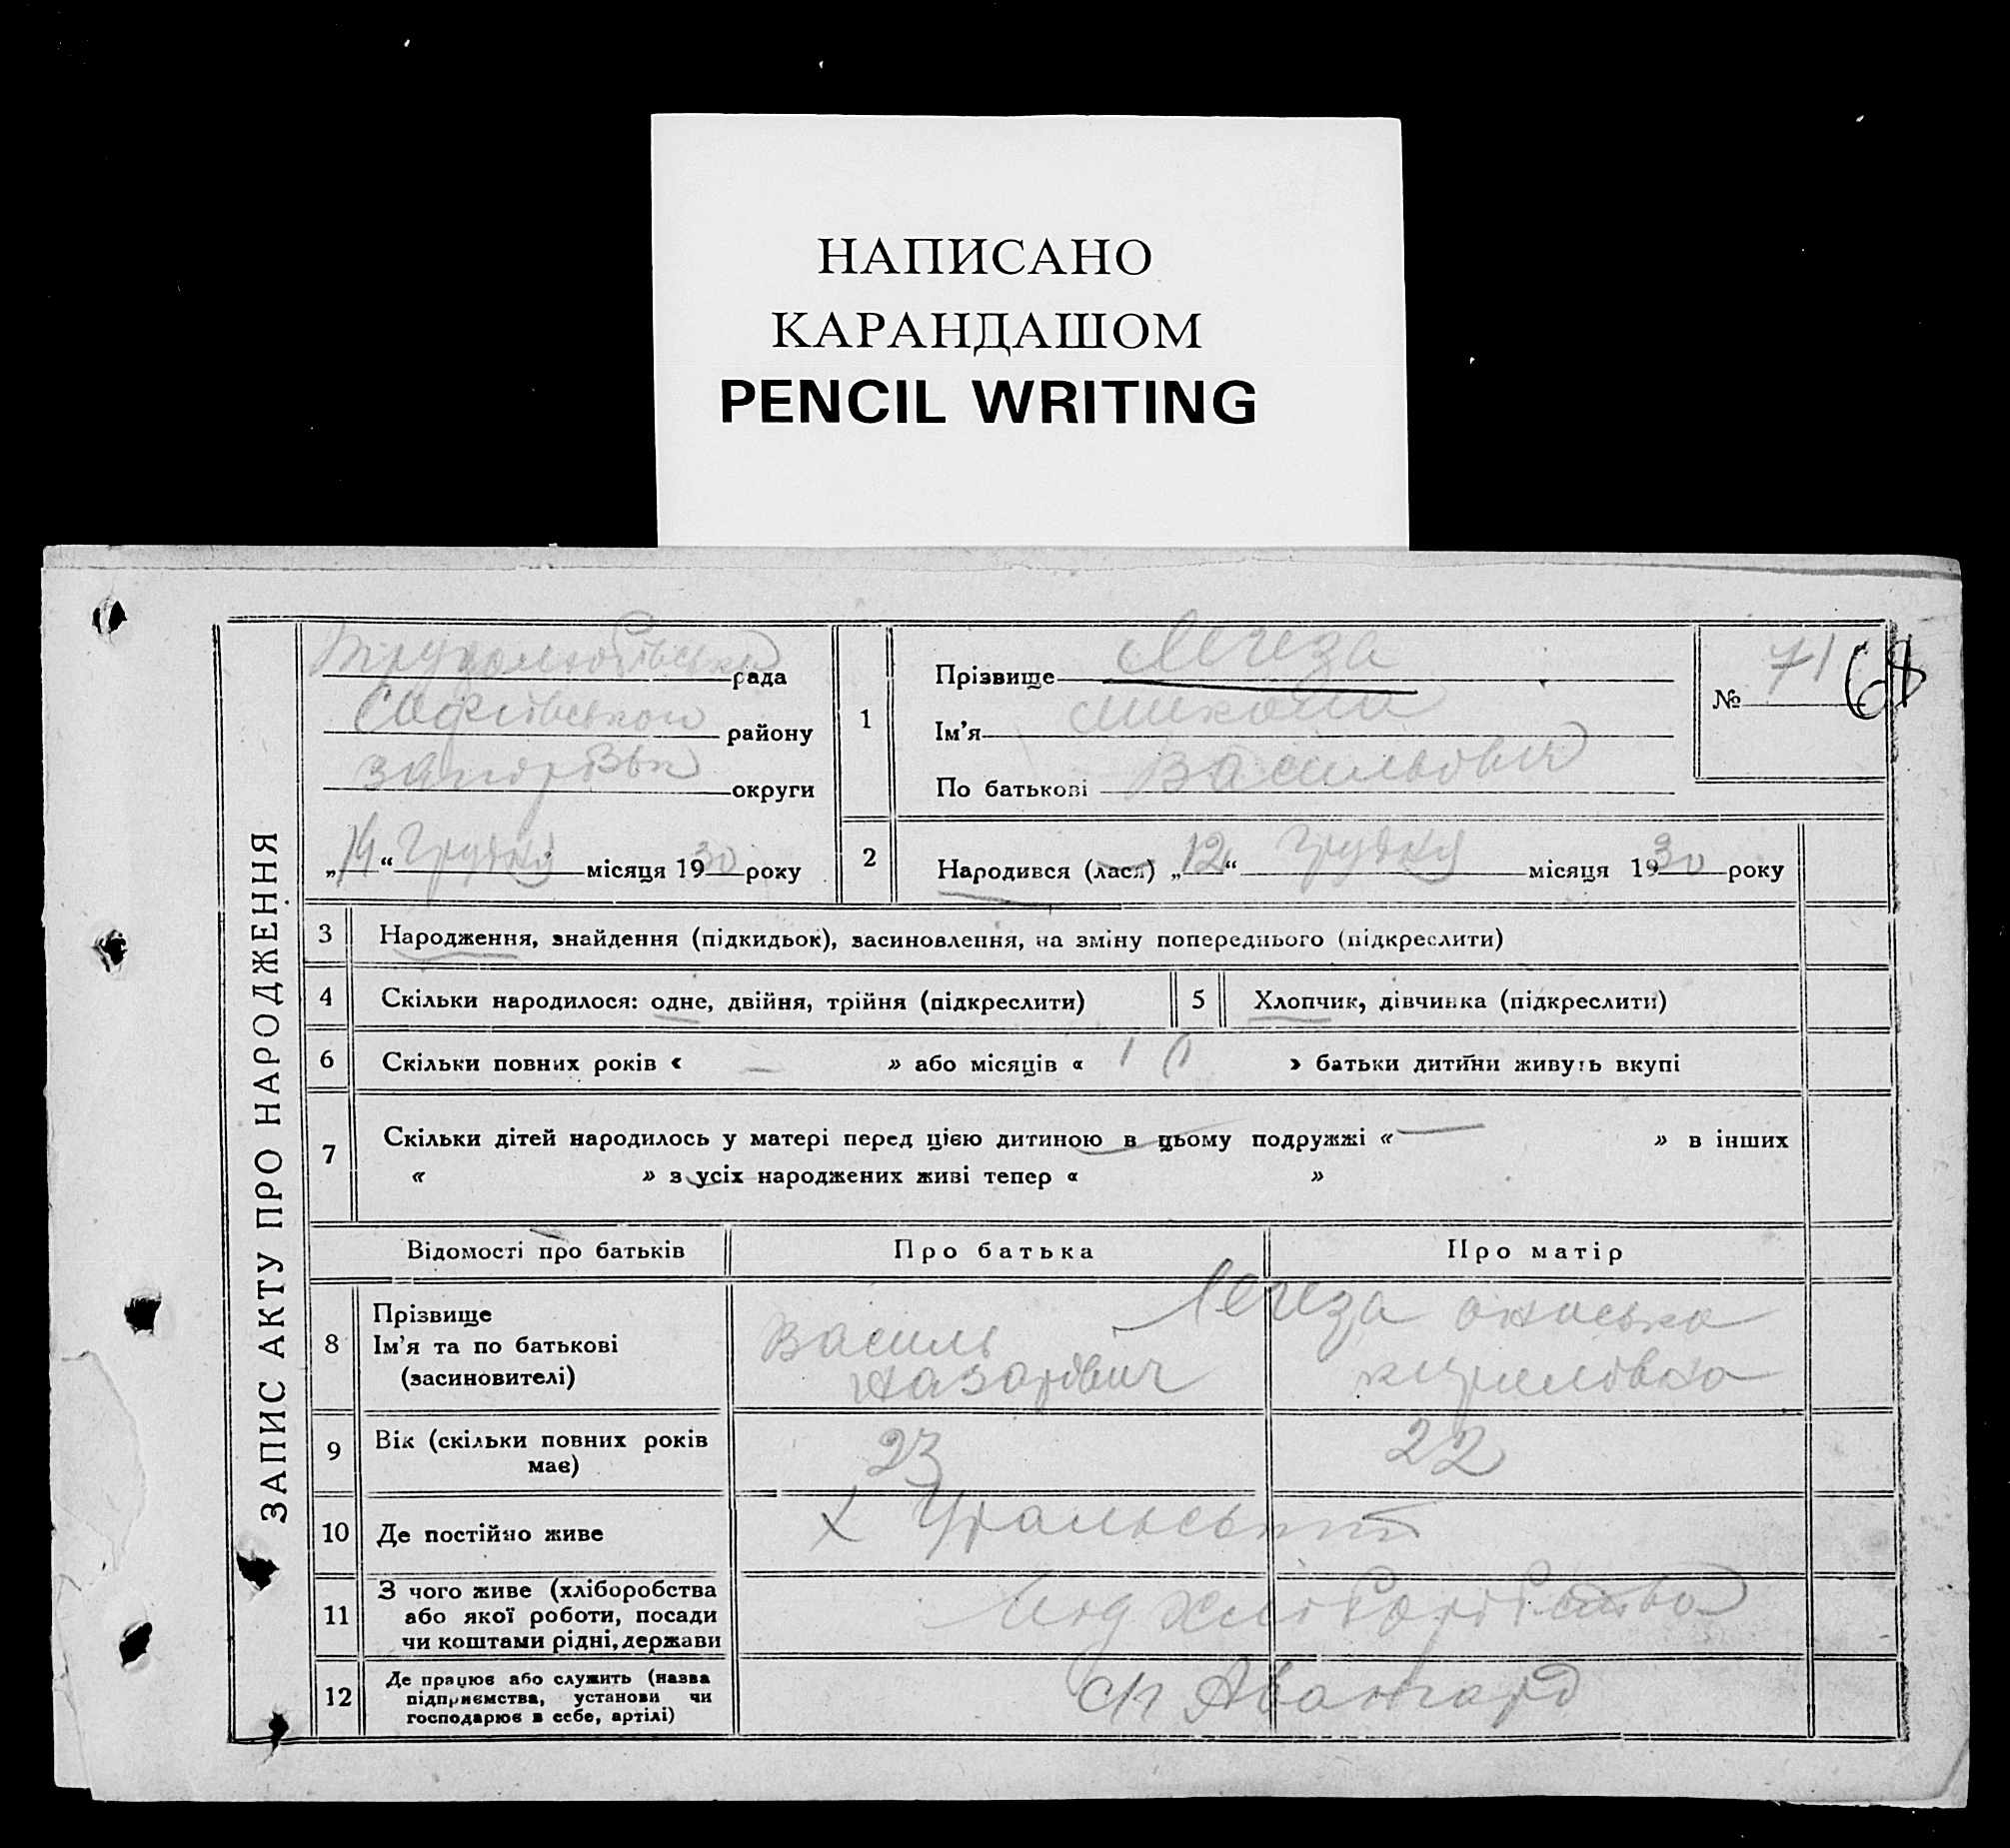 НАПИСАНО
КАРАНДАШОМ
PENCIL WRITING
ЗАПИС АКТУ ПРО НАРОДЖЕННЯ
Трудолюбівська рада
Софіївського району
Запорізьк округи
„14“ Грудня місяця 1930 року
1
Прізвище Легеза
Ім'я Микола
По батькові Васильович
№ 71
68
2
Народився (лася) „12“ Грудня місяця 1930 року
3 Народження, знайдення (підкидьок), засиновлення, на зміну попереднього (підкреслити)
4 Скільки народилося: одне, двійня, трійня (підкреслити) 5 Хлопчик, дівчинка (підкреслити)
6 Скільки повних років « — » або місяців « » батьки дитини живуть вкупі
7 Скільки дітей народилось у матері перед цією дитиною в цьому подружжі « — » в інших
« » з усіх народжених живі тепер « »
Відомості про батьків Про батька Про матір
8 Прізвище
Ім'я та по батькові
(засиновителі)
Легеза
Василь
Назарович
Кириловна
9 Вік (скільки повних років
має)
23 22
10 Де постійно живе х Уральський
11 З чого живе (хліборобства
або якої роботи, посади
чи коштами рідні, держави
хліборобства
12 Де працює або служить (назва
підприємства, установи чи
господарює в себе, артілі)
с/г Авангард